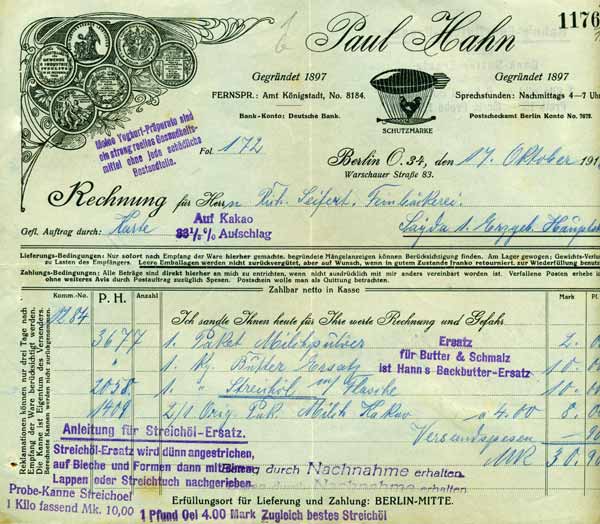 1176
Paul Hahn
Gegründet 1897
Gegründet 1897
FERNSPR.: Amt Königstadt, No. 8184.
Sprechstunden: Nachmittags 4–7 Uhr
Bank-Konto: Deutsche Bank.
Postscheckamt Berlin Konto No. 7079.
SCHUTZMARKE
Meine Yoghurt-Präparate sind
ein streng reelles Gesundheits-
mittel ohne jede schädliche
Bestandteile.
Fol. 172
Berlin O. 34, den 17. Oktober 191
Warschauer Straße 83.
Rechnung für Herrn Rich. Seifert, Feinbäckerei.
Gefl. Auftrag durch: Karte
Sayda i. Erzgeb.
Auf Kakao
33⅓% Aufschlag
Lieferungs-Bedingungen: Nur sofort nach Empfang der Ware hierher gemachte, begründete Mängelanzeigen können Berücksichtigung finden. Am Lager gewogen; Gewichts-Verlu
zu Lasten des Empfängers. Leere Emballagen werden nicht zurückvergütet, aber auf Wunsch, wenn in gutem Zustande franko retourniert, zur Wiederfüllung benut
Zahlungs-Bedingungen: Alle Beträge sind direkt hierher an mich zu entrichten, wenn nicht ausdrücklich mit mir anders vereinbart worden ist. Verfallene Posten erhebe ich
ohne weiteres Avis durch Postauftrag zuzüglich Spesen. Postschein wolle man als Quittung betrachten.
Zahlbar netto in Kasse
Komm.-No. P. H. Anzahl Mark Pf.
Ich sandte Ihnen heute für Ihre werte Rechnung und Gefahr
3677 1. Paket Milchpulver 2.
1. Kg. Butter Ersatz 10.
2058. 1. " Streichöl m/ Flasche 10.
1409 2/1 Orig. Pak. Milch Kakao a 4.00 8.
Versandspesen 90
MK 30.90
Ersatz
für Butter & Schmalz
ist Hann's Backbutter-Ersatz
Reklamationen können nur drei Tage nach
Empfang der Ware berücksichtigt werden.
Die Kanne ist Eigentum des Versenders.
Berechnete Kannen werden nicht zurückgenommen.
Anleitung für Streichöl-Ersatz.
Streichöl-Ersatz wird dünn angestrichen,
auf Bleche und Formen dann mit einem
Lappen oder Streichtuch nachgerieben.
Betrag durch Nachnahme erhalten.
durch Nachnahme erhalten.
Probe-Kanne Streichoel
1 Kilo fassend Mk. 10,00
Erfüllungsort für Lieferung und Zahlung: BERLIN-MITTE.
1 Pfund Oel 4.00 Mark Zugleich bestes Streichöl